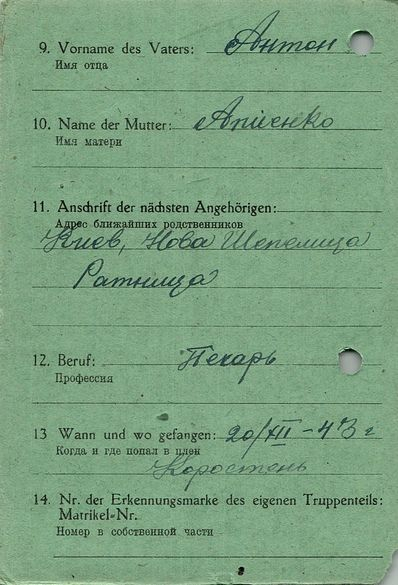 9. Vorname des Vaters: Антон
Имя отца
10. Name der Mutter: Арпіенко
Имя матери
11. Anschrift der nächsten Angehörigen:
Адрес ближайших родственников
Киев, Нова Шепелица
Ратница
12. Beruf: Пекарь
Профессия
13 Wann und wo gefangen: 20/XII-43 г
Когда и где попал в плен
Коростень
14. Nr. der Erkennungsmarke des eigenen Truppenteils:
Matrikel-Nr.
Номер в собственной части